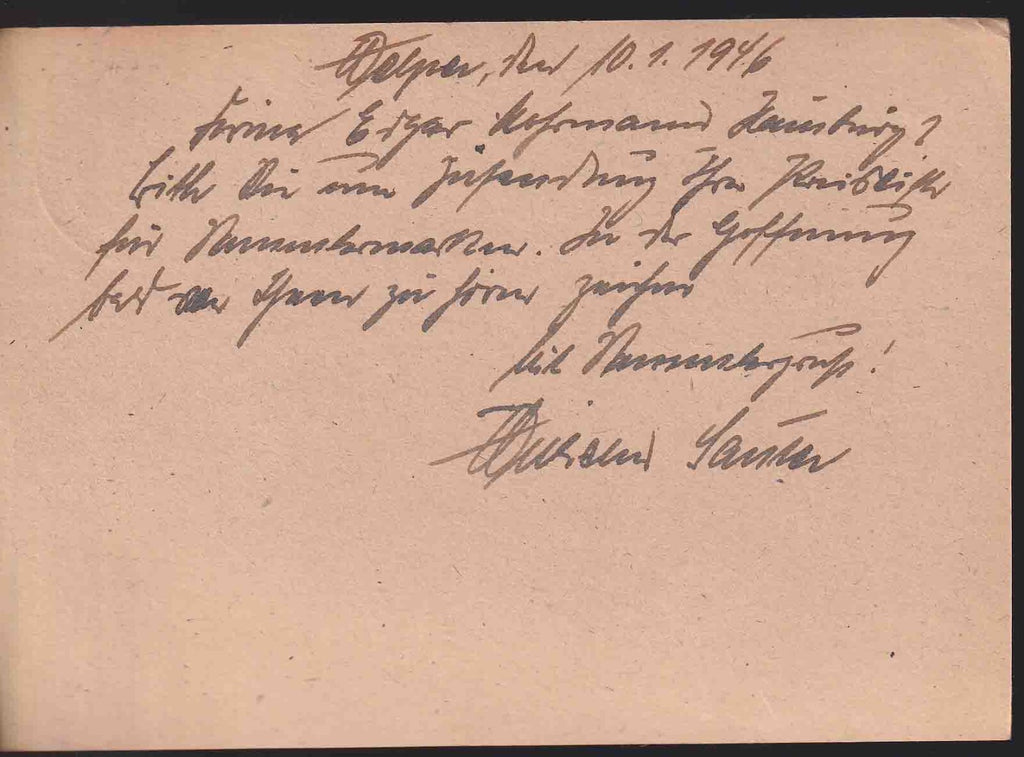 Welper, den 10.1.1946
Firma Edgar Mohrmann Hamburg?
bitte Sie um Zusendung Ihrer Preisliste
für Sammlermarken. In der Hoffnung
bald von Ihnen zu hören zeichne
Mit Sammlergruß!
Wilhelm